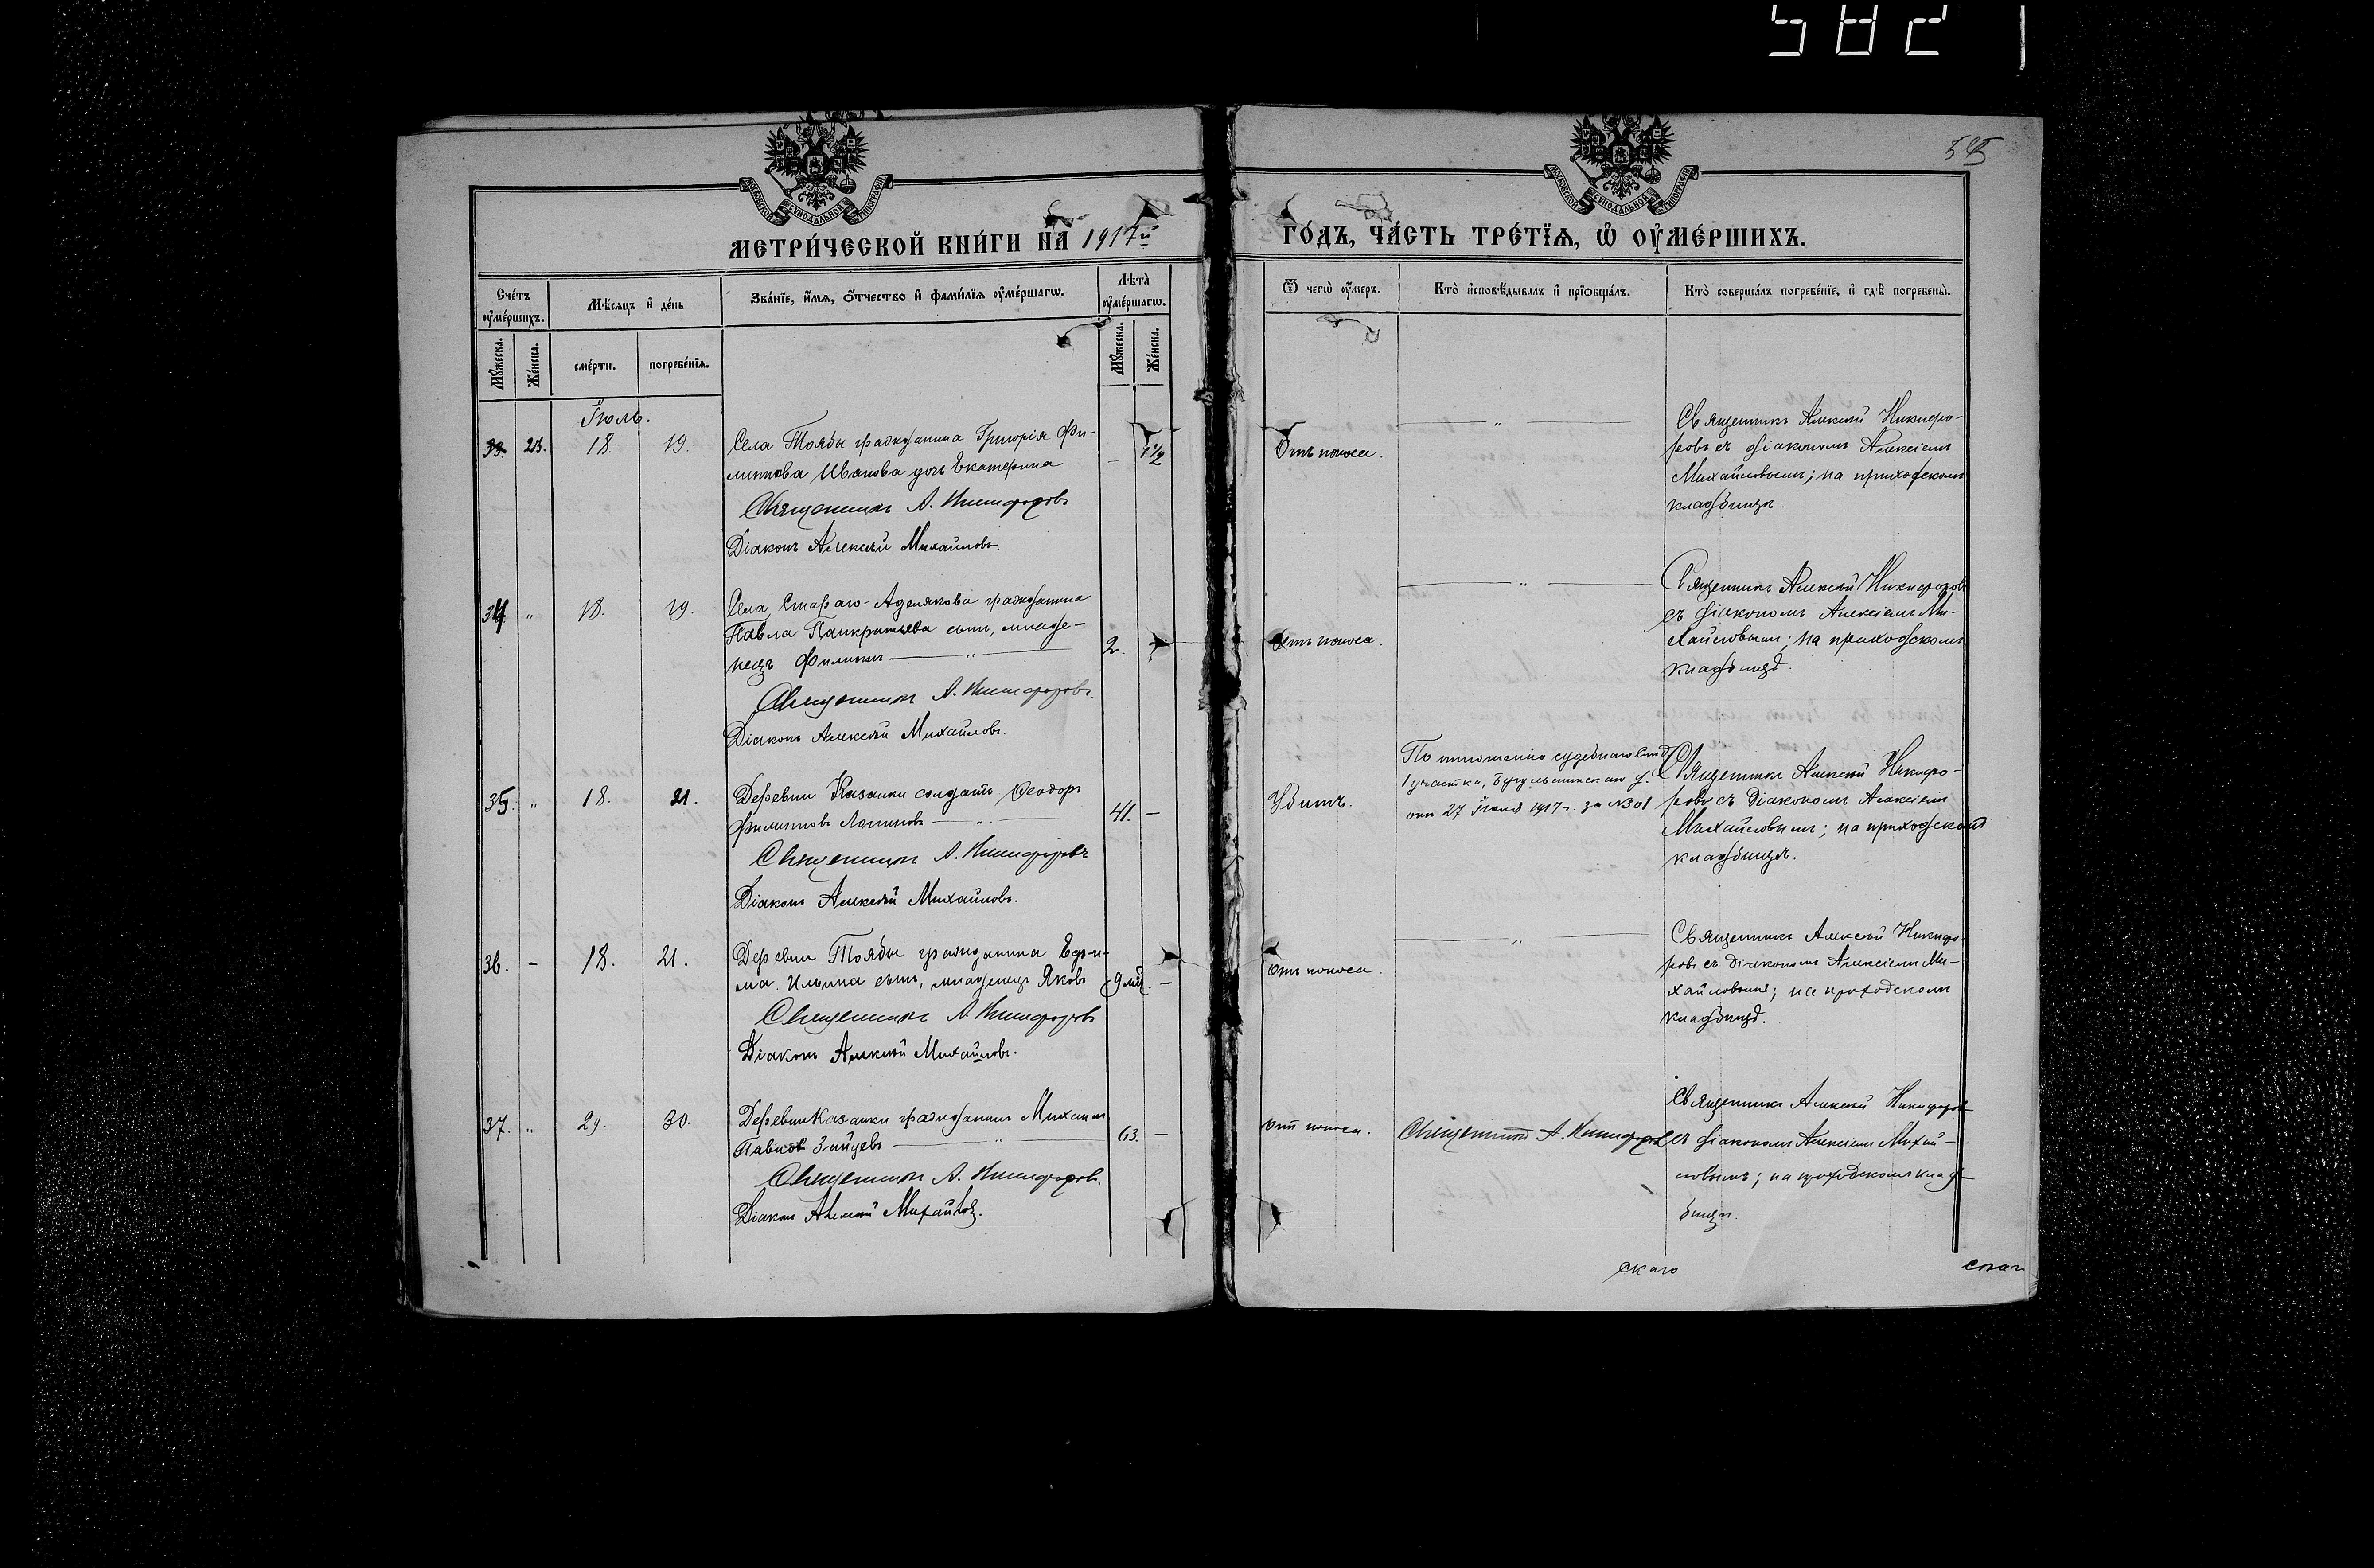 5821
585
МОСКОВСКОЙ СѴНОДАЛЬНОЙ ТИПОГРАФІИ
МОСКОВСКОЙ СѴНОДАЛЬНОЙ ТИПОГРАФІИ
МЕТРИ́ЧЕСКОЙ КНИ́ГИ НА 1917й ГО́ДЪ, ЧА́СТЬ ТРЕ́ТЇѦ, Ѡ ОУ҆МЕ́РШИХЪ.
Сче́тъ оу҆ме́ршихъ.
Мѣ́сѧцъ и҆ де́нь
Зва́нїе, и҆́мѧ, ѻ҆́тчество и҆ фами́лїѧ оу҆ме́ршагѡ.
Лѣ́та оу҆ме́ршагѡ.
Ѿ чегѡ̀ оу҆́меръ.
Кто̀ и҆сповѣ́дывалъ и҆ прїѡбща́лъ.
Кто̀ соверша́лъ погребе́нїе, и҆ гдѣ̀ погребены̀.
Мꙋ́жеска.
Же́нска.
сме́рти.
погребе́нїѧ.
Мꙋ́жеска.
Же́нска.
Іюль.
23. 18. 19.
Села Тоябы гражданина Григорія Фи-
липпова Иванова дочь Екатерина
— 1½
Священникъ А. Никифоровъ
Діаконъ Алексѣй Михайловъ.
Отъ поноса.
— " —
Священникъ Алексѣй Никифо-
ровъ съ діакономъ Алексіемъ
Михайловымъ; на приходскомъ
кладбищѣ.
34. " 18. 19.
Села Стараго-Аделякова гражданина
Павла Панкратьева сынъ, младе-
нецъ Филиппъ — " —
2.
Священникъ А. Никифоровъ.
Діаконъ Алексѣй Михайловъ.
Отъ поноса.
— " —
Священникъ Алексѣй Никифоровъ
съ діакономъ Алексіемъ Ми-
хайловымъ; на приходскомъ
кладбищѣ.
35. " 18. 21.
Деревни Казанки солдатъ Ѳеодоръ
Филипповъ — " —
41. —
Священникъ А. Никифоровъ
Діаконъ Алексѣй Михайловъ.
Убитъ.
По отношенію судебнаго слѣд.
1 участка, Бугульминскаго у.
отъ 27 Іюля 1917 г. за №
Священникъ Алексѣй Никифо-
ровъ съ діакономъ Алексіемъ
Михайловымъ; на приходскомъ
кладбищѣ.
36. — 18. 21.
Деревни Тоябы гражданина Ефи-
ма Ильина сынъ, младенецъ Яковъ
9 мѣс. —
Священникъ А. Никифоровъ
Діаконъ Алексѣй Михайловъ.
Отъ поноса.
— " —
Священникъ Алексѣй Никифо-
ровъ съ діакономъ Алексіемъ Ми-
хайловымъ; на приходскомъ
кладбищѣ.
37. " 29. 30.
Деревни Казанки гражданинъ Михаилъ
Павловъ Зайцевъ — " —
63. —
Священникъ А. Никифоровъ.
Діаконъ Алексѣй Михайловъ.
Отъ поноса.
Священникъ А. Никифоровъ
Священникъ Алексѣй Никифоровъ
съ діакономъ Алексіемъ Михай-
ловымъ; на приходскомъ клад-
бищѣ.
скаго